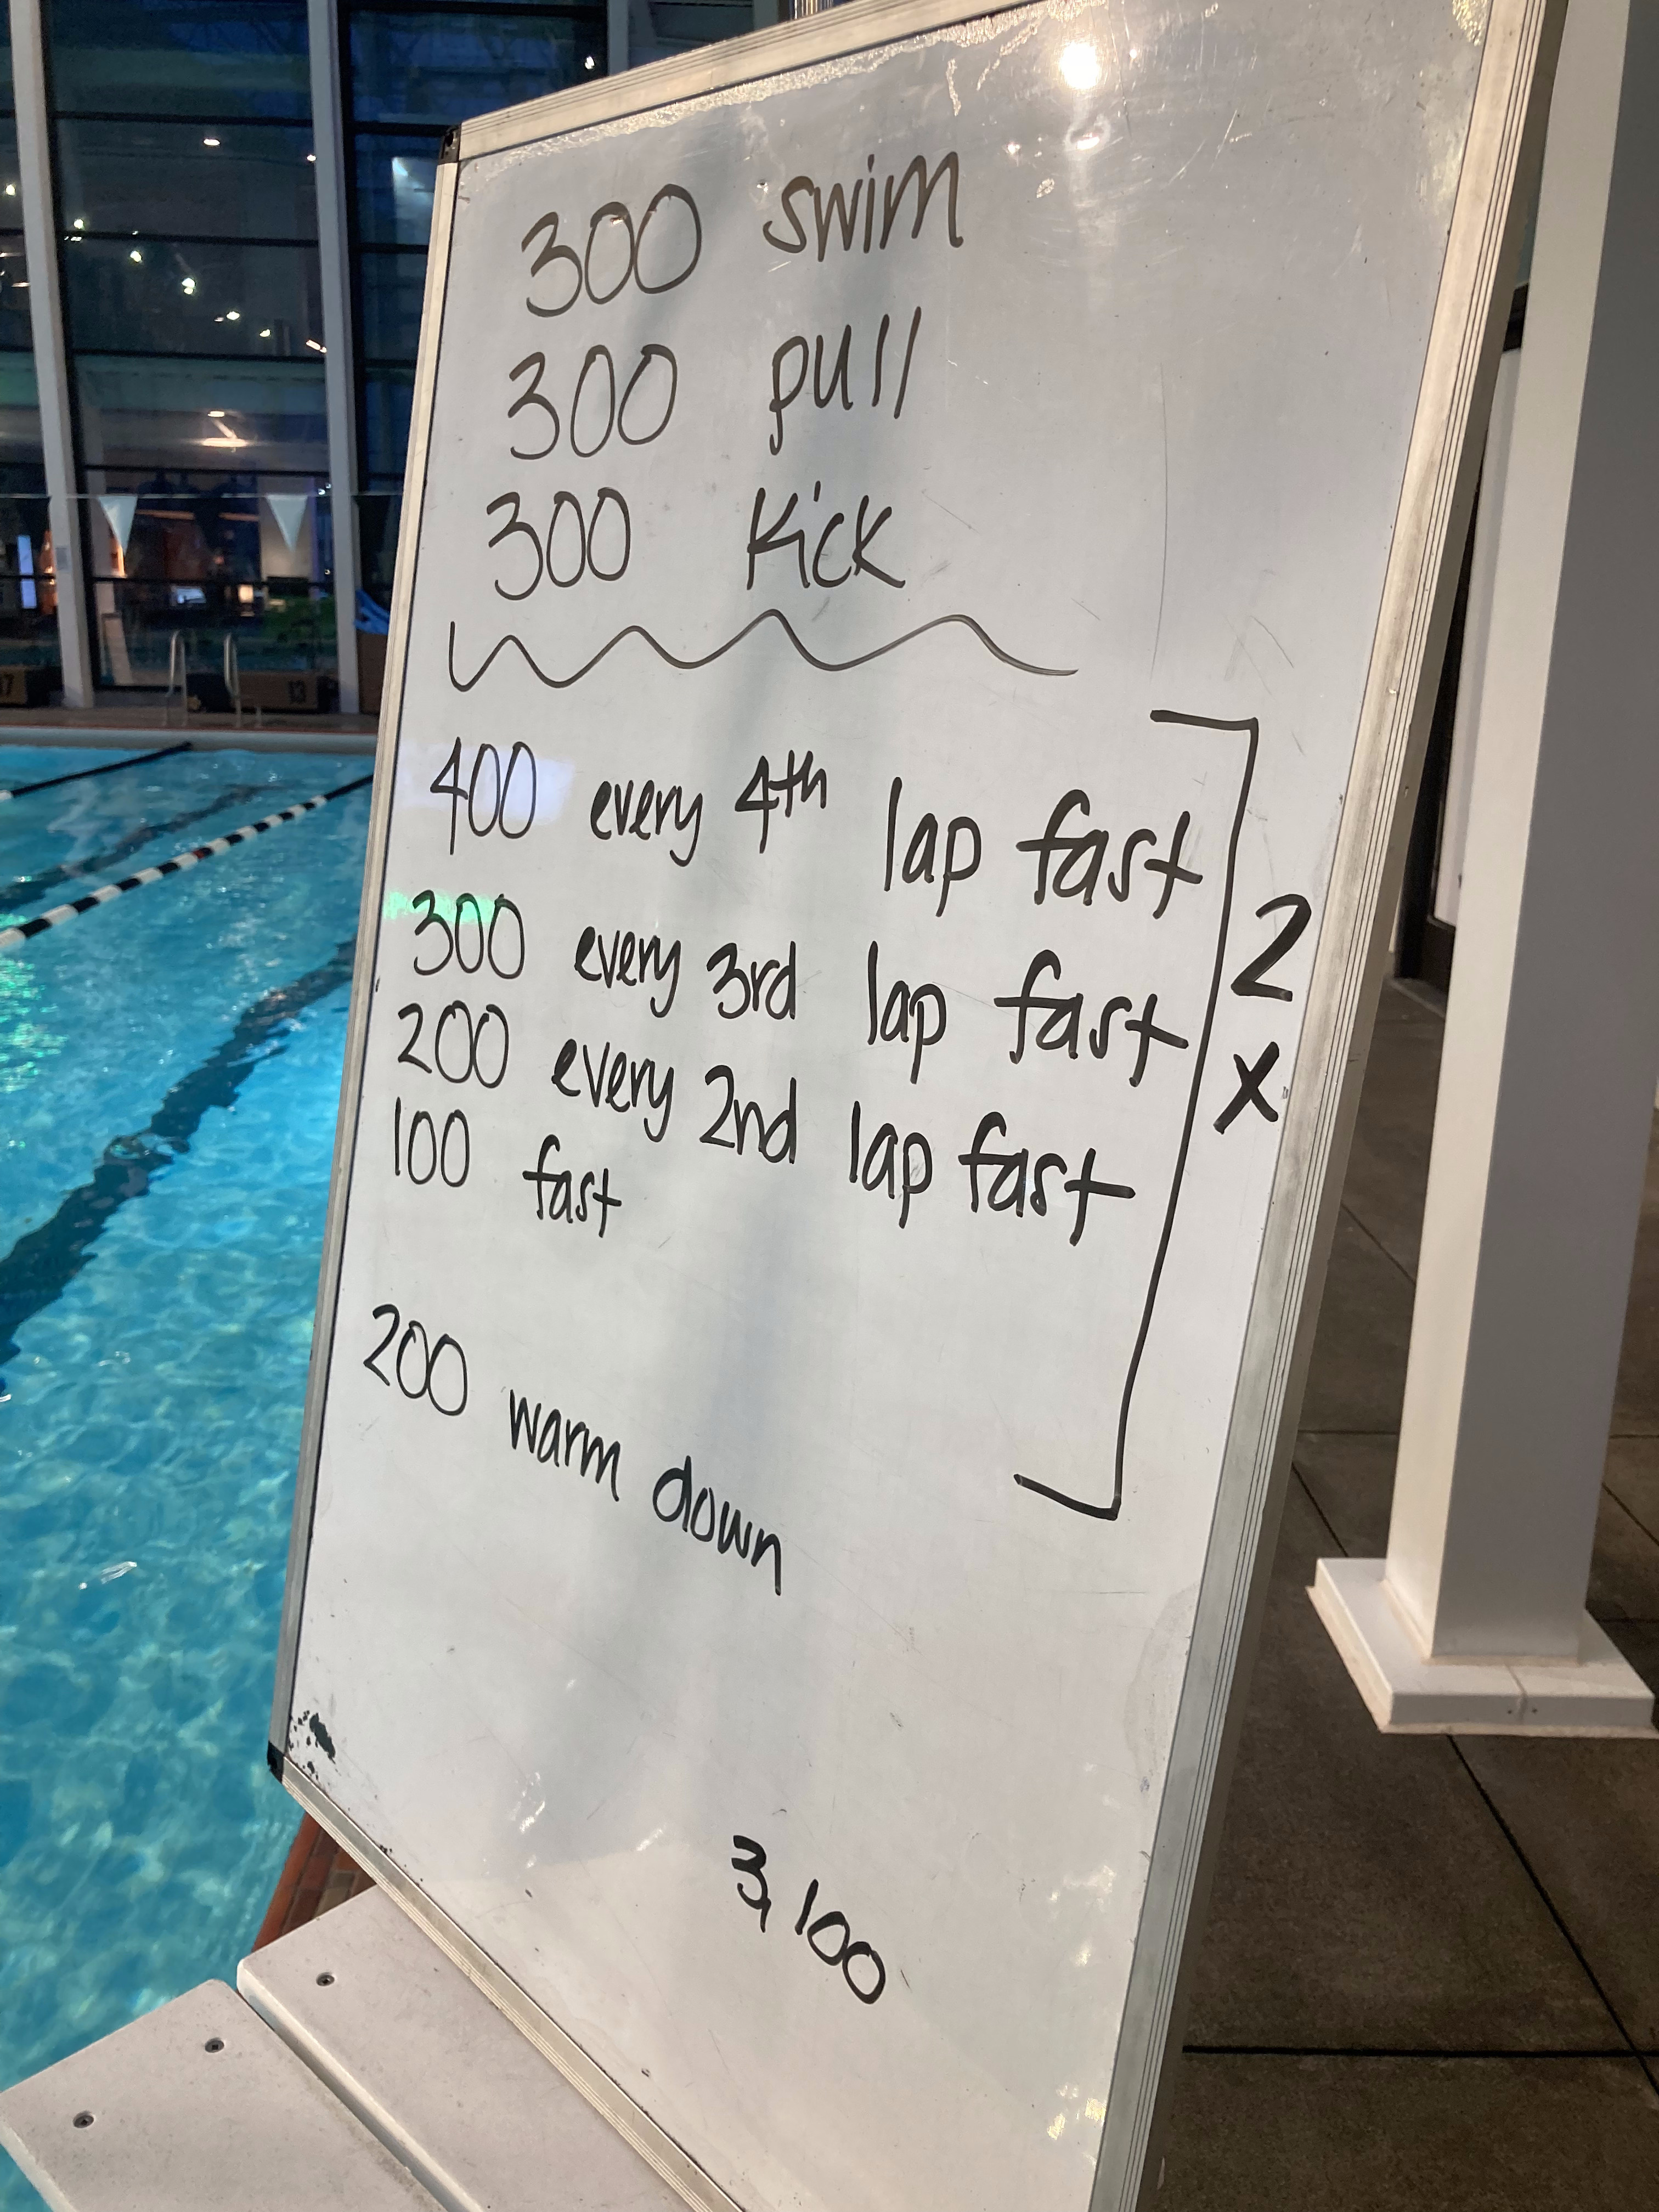 300 swim
300 pull
300 Kick
400 every 4th lap fast
300 every 3rd lap fast
200 every 2nd lap fast
100 fast
2
x
200 warm down
3,100
13